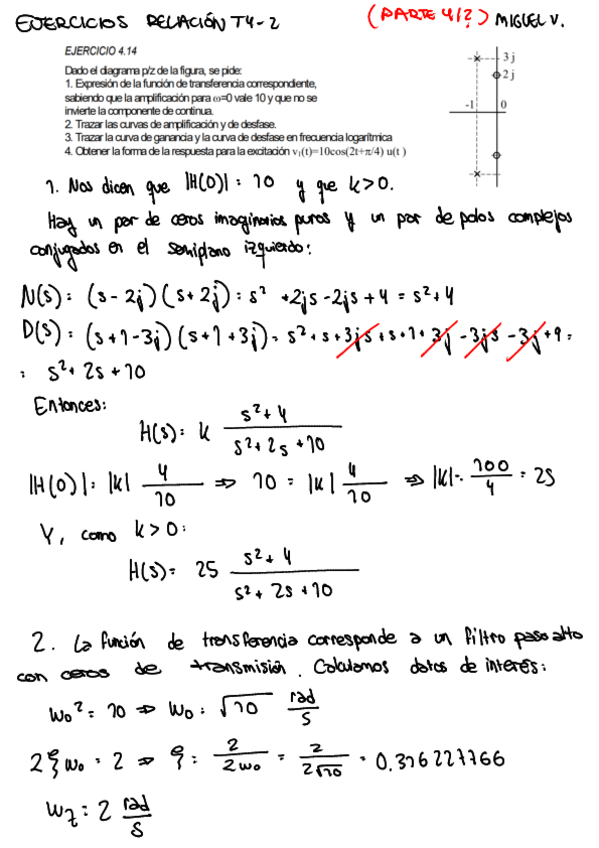 EJERCICIOS RELACIÓN T4-2 (PARTE 4/?) MIGUEL V.
EJERCICIO 4.14
Dado el diagrama p/z de la figura, se pide:
1. Expresión de la función de transferencia correspondiente,
sabiendo que la amplificación para ω=0 vale 10 y que no se
invierte la componente de continua.
2. Trazar las curvas de amplificación y de desfase.
3. Trazar la curva de ganancia y la curva de desfase en frecuencia logarítmica
4. Obtener la forma de la respuesta para la excitación v₁(t)=10cos(2t+π/4) u(t )
3 j
2 j
-1 0
1. Nos dicen que |H(0)| = 10 y que k>0.
Hay un par de ceros imaginarios puros y un par de polos complejos
conjugados en el semiplano izquierdo:
N(s) = (s-2j)(s+2j) = s² +2js-2js+4 = s²+4
D(s) = (s+1-3j)(s+1+3j) = s²+s+3js+s+1+3j-3js-3j+9 =
= s²+2s+10
Entonces:
H(s) = k (s²+4)/(s²+2s+10)
|H(0)| = |k| 4/10 ⇒ 10 = |k| 4/10 ⇒ |k| = 100/4 = 25
Y, como k>0:
H(s) = 25 (s²+4)/(s²+2s+10)
2. La función de transferencia corresponde a un filtro paso alto
con ceros de transmisión. Calculamos datos de interés:
ω₀² = 10 ⇒ ω₀ = √10 rad/s
2ξω₀ = 2 ⇒ ξ = 2/2ω₀ = 2/2√10 = 0.316227766
ωz = 2 rad/s